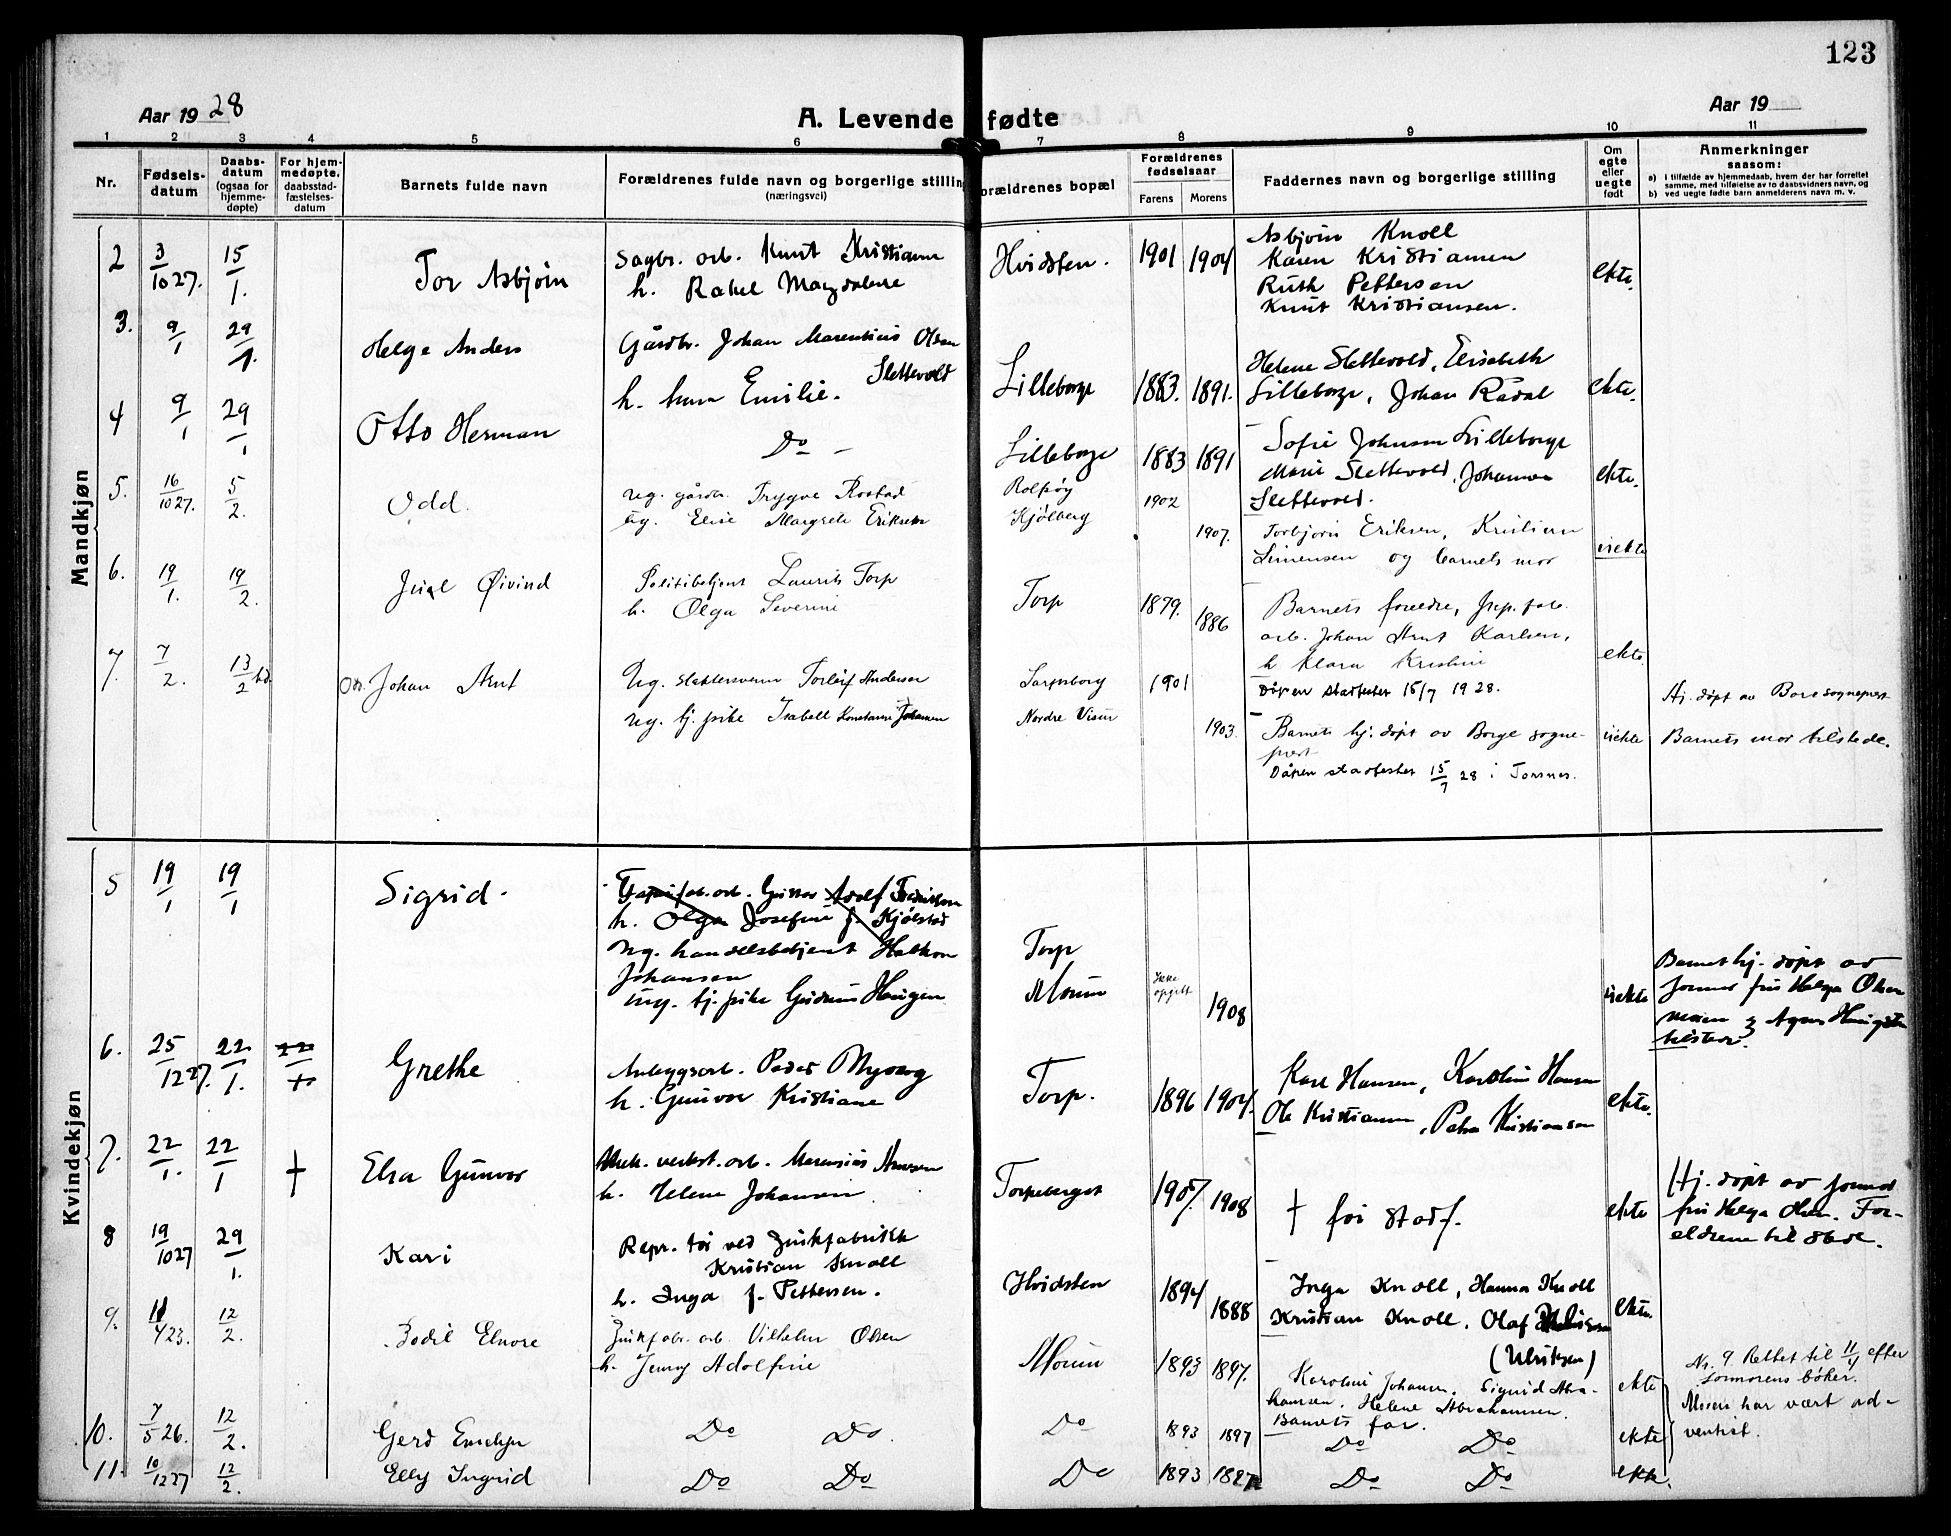 123
Aar 1928
A. Levende fødte
Aar 19
1 2 3 4 5 6 7 8 9 10 11
Nr.
Fødselsdatum
Daabsdatum (ogsaa for hjemmedøpte)
For hjemmedøpte, daabsstadfæstelsesdatum
Barnets fulde navn
Forældrenes fulde navn og borgerlige stilling
(næringsvei)
orældrenes bopæl
Forældrenes fødselsaar
Farens Morens
Faddernes navn og borgerlige stilling
Om egte eller uegte født
Anmerkninger
saasom:
a) I tilfælde av hjemmedaab, hvem der har forrettet
samme, med tilføielse av to daabsvidners navn, og
b) ved uegte fødte barn anmelderens navn m. v.
Mandkjøn
2 3/10 27. 15/1. Tor Asbjørn
Sagbr. arb. Knut Kristiansen
h. Rakel Magdalene
Hvidsten. 1901 1904
Asbjørn Knoll
Karen Kristiansen
Ruth Pettersen
Knut Kristiansen.
ekte.
3. 9/1 29/1. Helge Anders
Gårdbr. Johan Marentius Olsen
Slettevold
h. Emilie.
Lilleborge 1883. 1891.
Helene Slettevold, Elisabeth
Lilleborge, Johan Rådal
ekte.
4 9/1 29/1 Otto Herman
Do -
Lilleborge 1883 1891
Sofie Johnsen Lilleborge
Marie Slettevold, Johannes
Slettevold.
ekte.
5. 16/10 27. 5/2. Odd.
ug. gårdbr. Trygve Rostad
ug. Elise Margrete Eriksen
Rolfsøy
Kjølberg
1902 1907.
Torbjørn Eriksen, Kristian
Simensen og barnets mor
uekte
6. 19/1. 19/2. Juel Øivind
Politibetjent Laurits Torp
h. Olga Severine
Torp 1879. 1886
Barnets foreldre, fab.
arb. Johan Arnt Karlsen,
h Klara Kristine
ekte.
7. 7/2. 13/2 Johan Arnt
Ug. slaktersvenn Torleif Andersen
ug. tj. pike Isabell Konstanse Johansen
Sarpsborg
Nordre Visur
1901 1903.
Dåpen stadfestet 15/7 1928.
Barnets hj. døpt av Borge sogne-
prest
Dåpen stadfestet 15/7 28 i Torsnes.
uekte
Hj. døpt av Borge sogneprest
Barnets mor tilstede.
Kvindekjøn
5 19/1 19/1 Sigrid.
fab. arb. Gustav Adolf Fredriksen
h. Olga Josefine f. Kjølstad
Ug. handelsbetjent Haakon
Johansen
ug. tj. pike Gudrun Haugen
Torp
Moum
Ikke
opgitt
1908
uekte
Barnet hj. døpt av
jormor fru Helga Olsen
moren og Agnes
tilstede.
6. 25/12 27. 22/1. 22 + Grethe
Anleggsarb. Peder Myrvang
h. Gunvor Kristiane
Torp. 1896 1904.
Karl Hansen, Karoline Hansen
Ole Kristiansen, Petra Kristiansen
ekte.
7. 22/1. 22/1 † Elsa Gunvor
Mek. verkst. arb. Marensius Arnesen
h. Helene Johansen
Torpeberget 1907. 1908
† før stadf.
ekte
Hj. døpt av jormor
fru Helga Olsen. For-
eldrene til stede.
8 19/10 27 29/1. Kari
Repr. før ved Zinkfabrikk
Kristian Knoll
h. Inga f. Pettersen.
Hvidsten 1894 1888
Inga Knoll, Hanna Knoll
Kristian Knoll, Olaf
(Ulriksen)
ekte.
9. 11/4 23. 12/2. Bodil Elnore
Zinkfabr. arb. Vilhelm Olsen
h. Jenny Adolfine
Moum 1893 1897.
Karoline Johansen. Sigrid Abra-
hamsen. Helene Abrahamsen.
Barnets far.
ekte
Nr. 9 Rettet til 11/4 efter
jormorens bøker.
Moren har vært ad-
ventist.
10. 7/5 26. 12/2. Gerd Emelyn
Do Do.
Do 1893 1897
Do Do
ekte
11. 10/12 27 12/2. Elly Ingrid
Do Do
Do 1893 1897
Do Do
ekte.